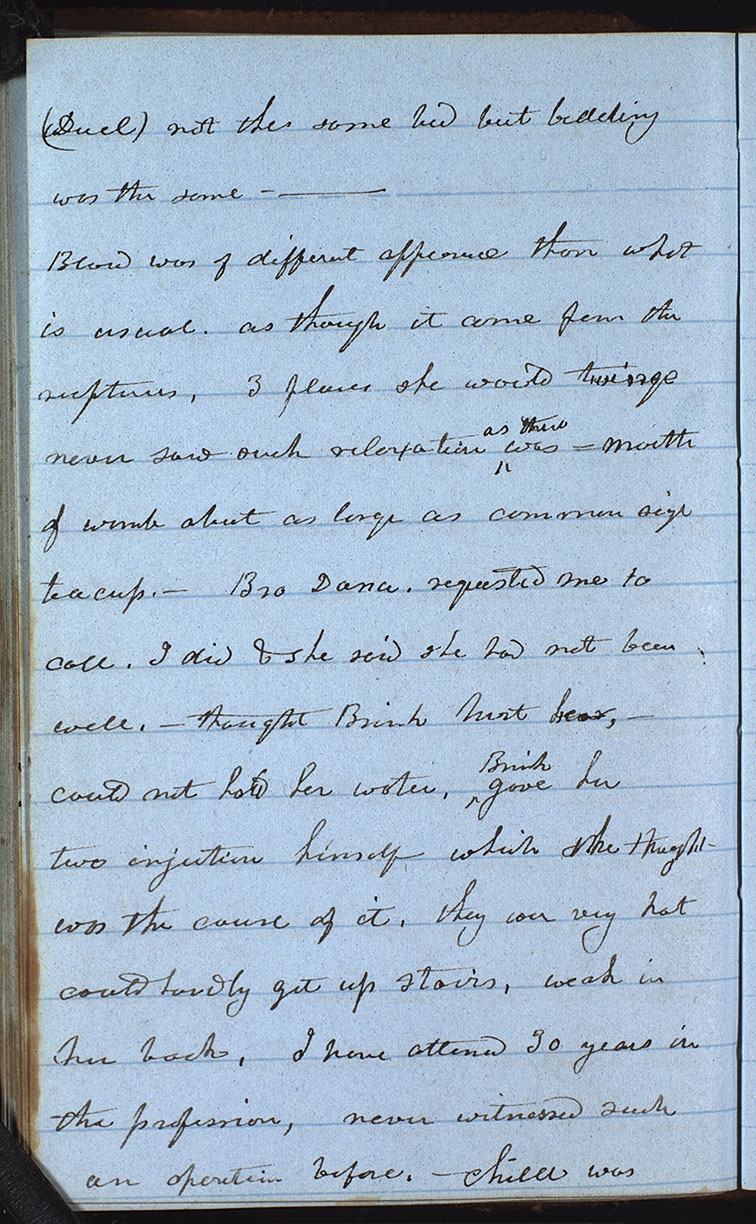 (Duel) not the same bed but bedding
was the same - ———
Blood was of different appearance than what
is usual. as though it come from the
ruptures, 3 places she would
never saw such relaxation as there was = mouth
of womb about as large as common size
teacup. — Bro Dana. requested me to
call. I did & she said she had not been
well. — thought Brink hurt her, —
could not hold her water, Brink gave her
two injection himself which she thought
was the cause of it. they wer very hot
could hardly get up stairs, weak in
her back, I have attend 30 years in
the profession, never witnessed such
an operation before. — child was